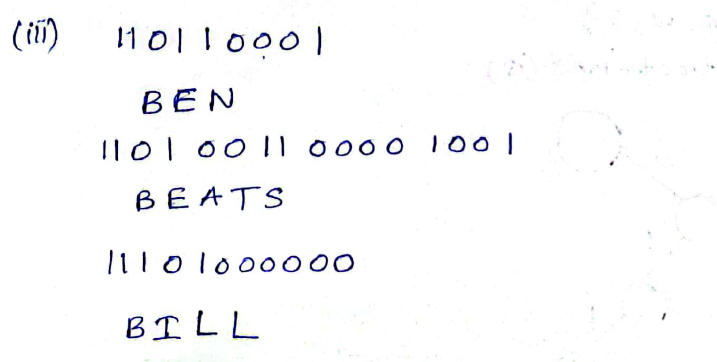 (iii) 110110001
BEN
1101 0011 0000 1001
BEATS
11101000000
BILL